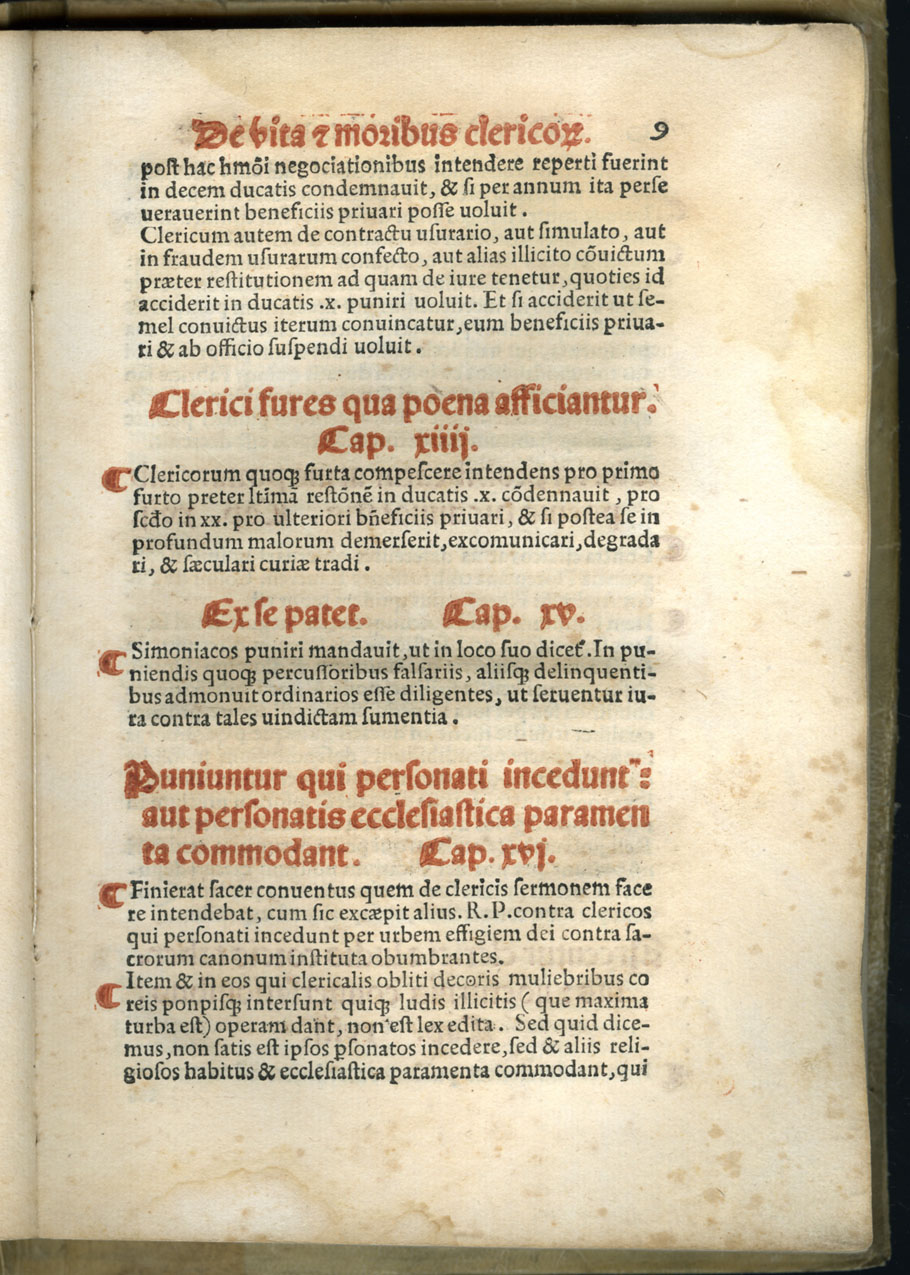 De vita ⁊ moribus clericoꝝ. 9
post hac hmõi negociationibus intendere reperti fuerint
in decem ducatis condemnauit, & si per annum ita perse
uerauerint beneficiis priuari posse uoluit.
Clericum autem de contractu usurario, aut simulato, aut
in fraudem usurarum confecto, aut alias illicito cõuictum
præter restitutionem ad quam de iure tenetur, quoties id
acciderit in ducatis .x. puniri uoluit. Et si acciderit ut se-
mel conuictus iterum conuincatur, eum beneficiis priua-
ri & ab officio suspendi uoluit.
Clerici fures qua poena afficiantur.
Cap. xiiij.
¶ Clericorum quoqꝫ furta compescere intendens pro primo
furto preter ltimã restõnẽ in ducatis .x. cõdennauit, pro
scđo in xx. pro ulteriori bñeficiis priuari, & si postea se in
profundum malorum demerserit, excomunicari, degrada
ri, & sæculari curiæ tradi.
Ex se patet. Cap. xv.
¶ Simoniacos puniri mandauit, ut in loco suo dicet᷑. In pu-
niendis quoqꝫ percussoribus falsariis, aliisqꝫ delinquenti-
bus admonuit ordinarios esse diligentes, ut seruentur iu-
ra contra tales uindictam sumentia.
Puniuntur qui personati incedunt:
aut personatis ecclesiastica paramen
ta commodant. Cap. xvj.
¶ Finierat sacer conuentus quem de clericis sermonem face
re intendebat, cum sic excæpit alius. R.P. contra clericos
qui personati incedunt per urbem effigiem dei contra sa-
crorum canonum instituta obumbrantes.
¶ Item & in eos qui clericalis obliti decoris muliebribus co
reis ponpisqꝫ intersunt quiqꝫ ludis illicitis (que maxima
turba est) operam dant, non est lex edita. Sed quid dice-
mus, non satis est ipsos ꝑsonatos incedere, sed & aliis reli-
giosos habitus & ecclesiastica paramenta commodant, qui